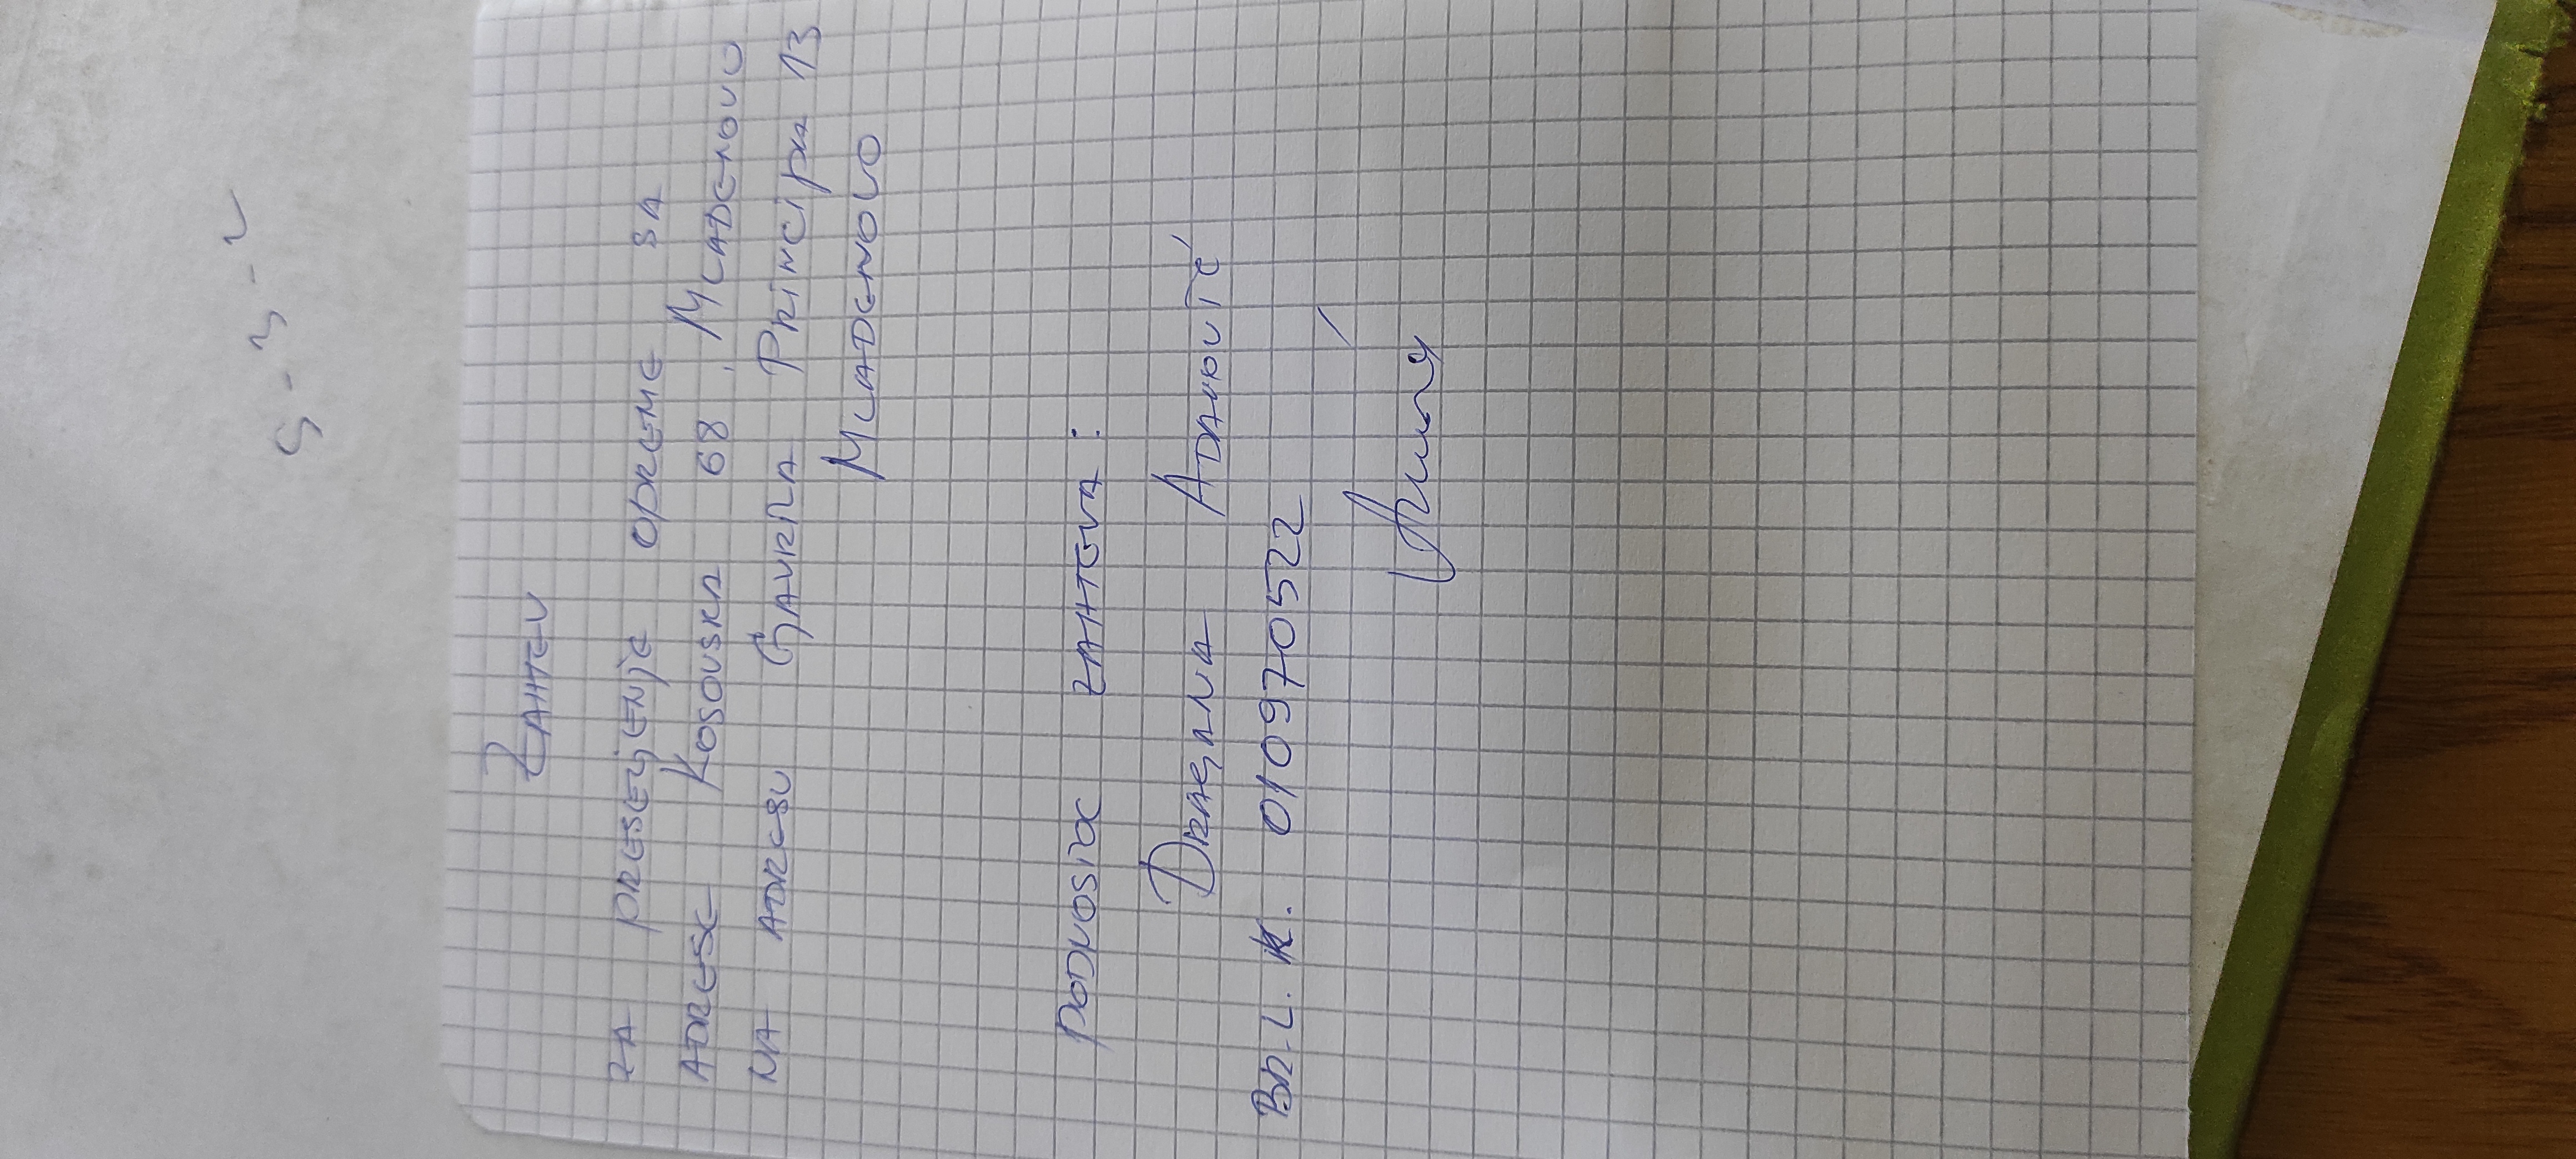 ZAHTEV
ZA PRESELJENJE OPREME SA
ADRESE KOSOVSKA 68, MLADENOVO
NA ADRESU GAVRILA PRINCIPA 13
MLADENOVO
PODNOSILAC ZAHTEVA:
DRAGANA ADAMOVIĆ
BR. L. K. 010970522